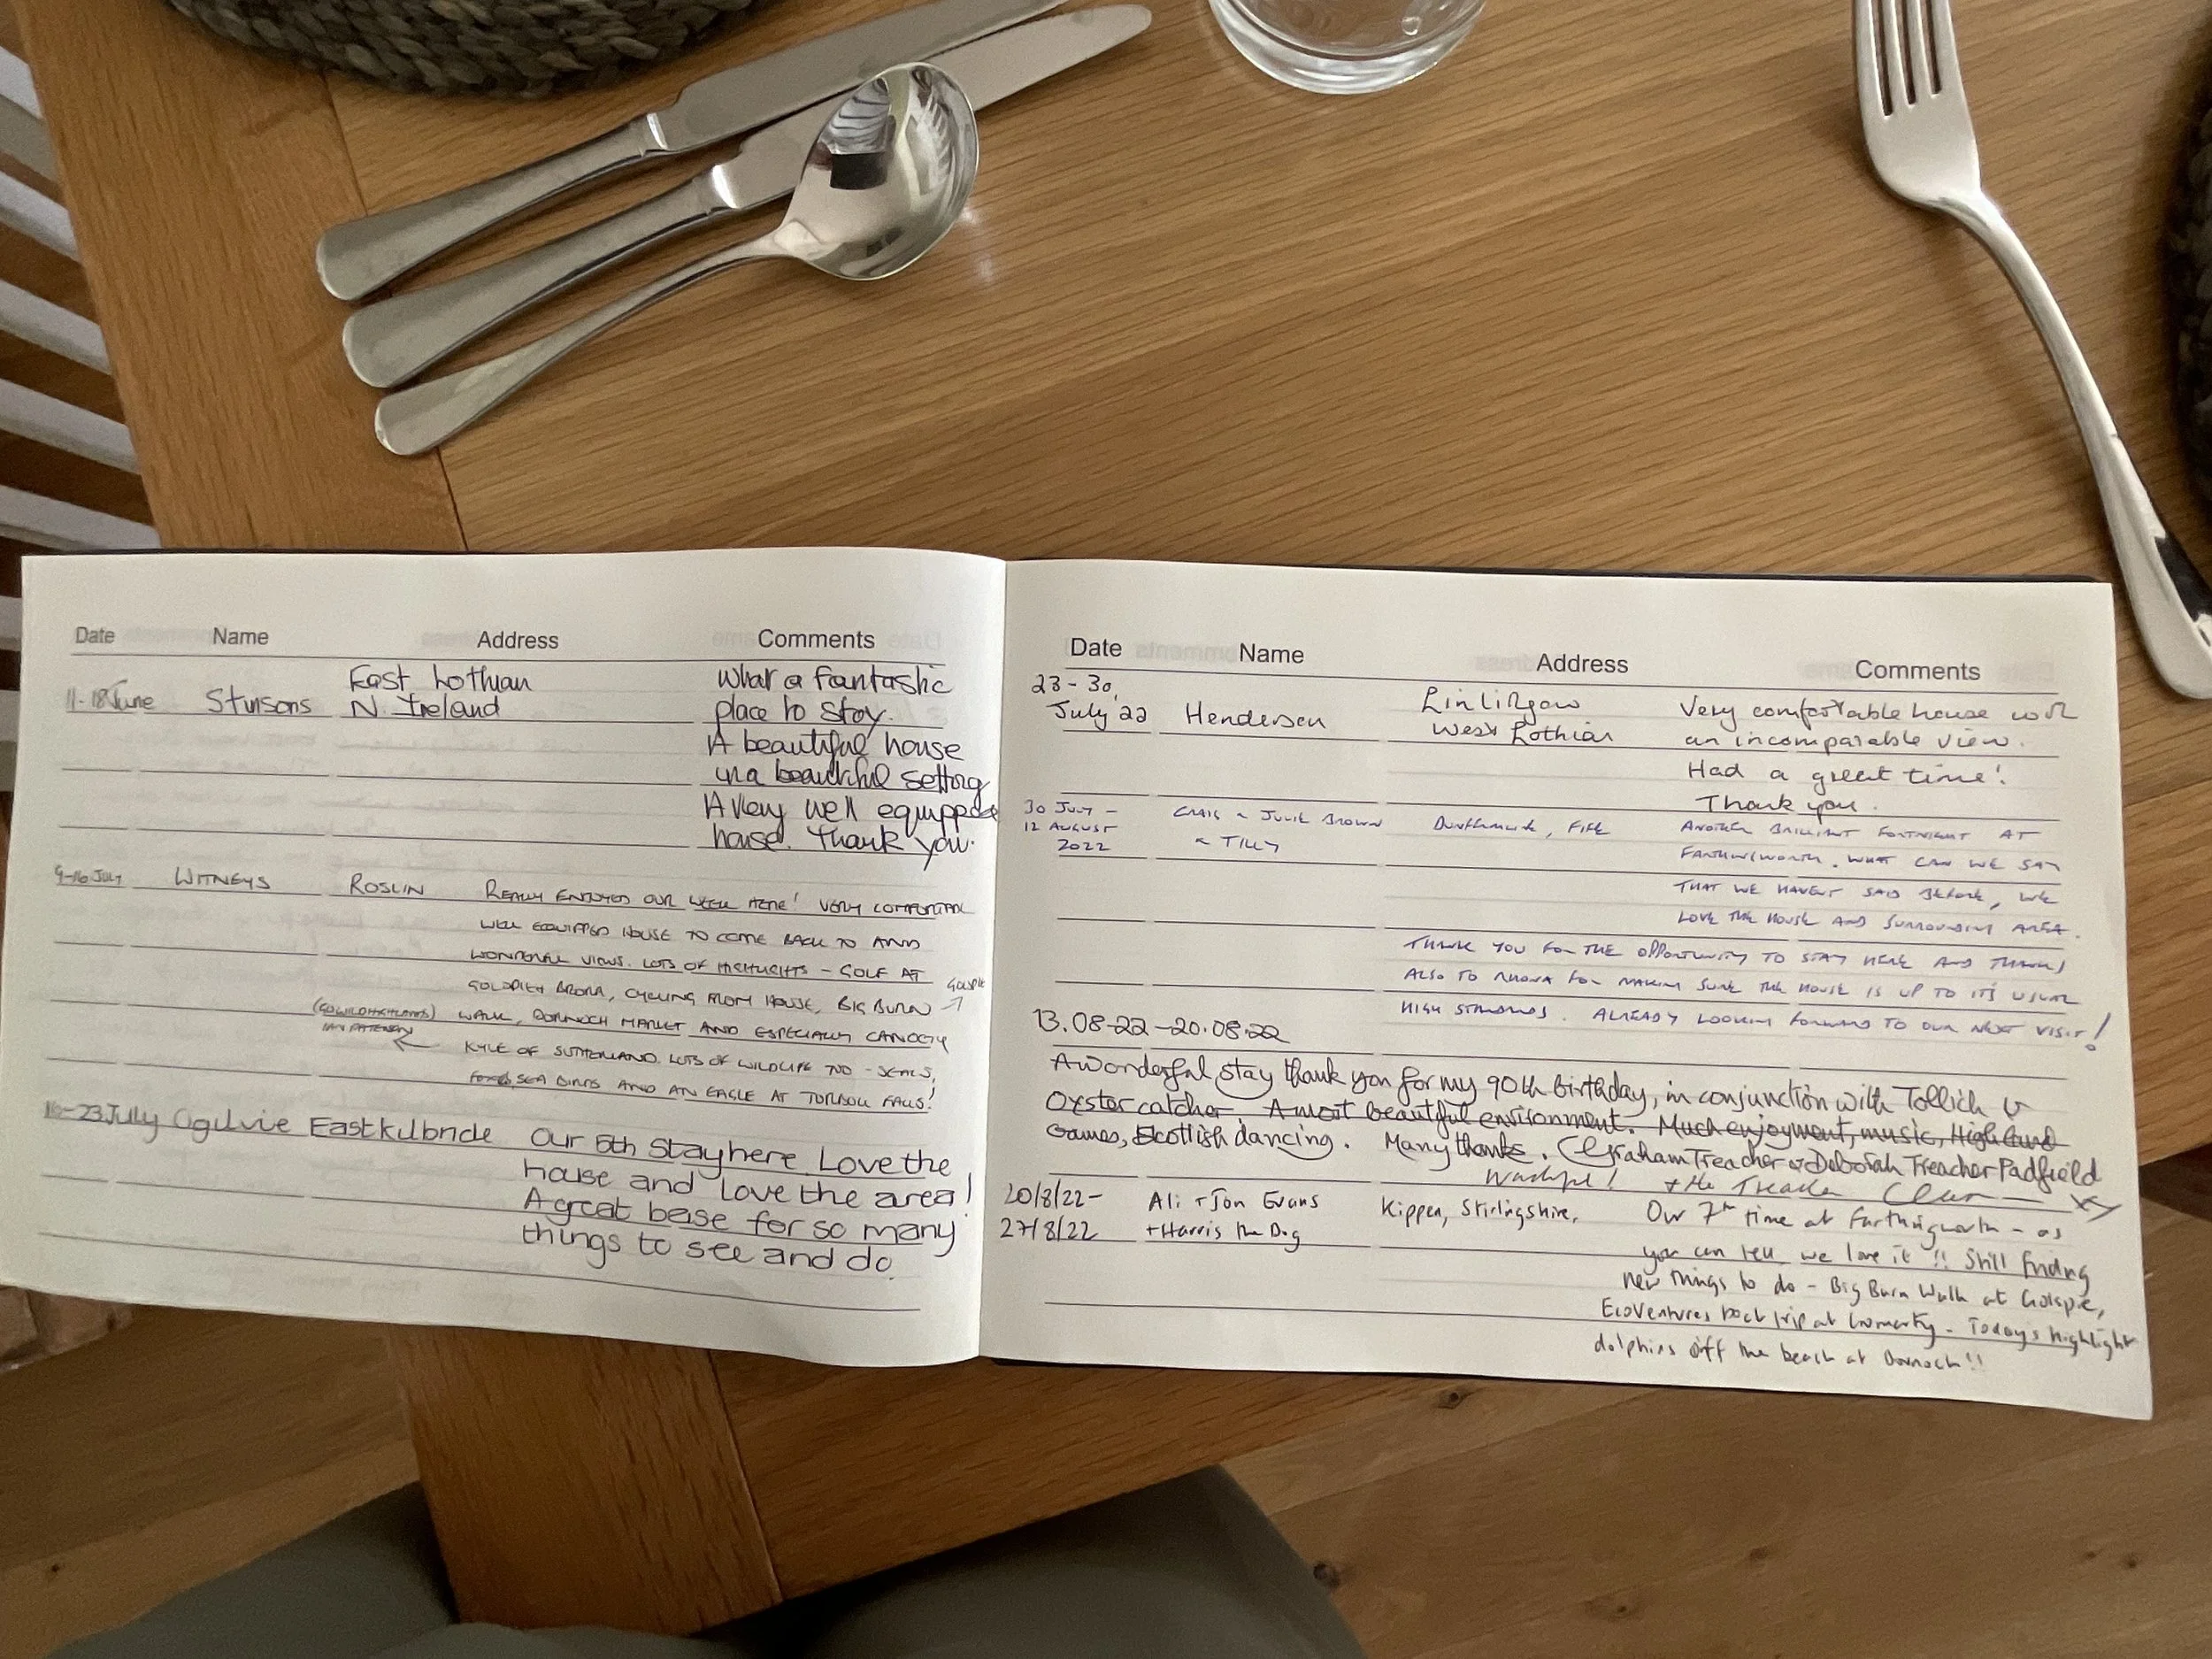 Date Name Address Comments
11-18 June Stinsons East Lothian
N. Ireland
What a fantastic
place to stay.
A beautiful house
in a beautiful setting
A very well equipped
house. Thank you.
9-16 July WITNEYS ROSLIN REALLY ENJOYED OUR WEEK HERE! VERY COMFORTABLE
WELL EQUIPPED HOUSE TO COME BACK TO AND
WONDERFUL VIEWS. LOTS OF HIGHLIGHTS - GOLF AT
GOLSPIE
BRORA, CYCLING FROM HOUSE, BIG BURN
WALK, DORNOCH MARKET AND ESPECIALLY CANOEING
KYLE OF SUTHERLAND. LOTS OF WILDLIFE TOO - SEALS,
SEA BIRDS AND AN EAGLE AT TORBOLL FALLS!
-23 July Ogilvie East Kilbride Our 5th Stay here. Love the
house and love the area!
A great base for so many
things to see and do.
Date Name Address Comments
23-30
July '22 Henderson Linlithgow
West Lothian
Very comfortable house with
an incomparable view.
Had a great time!
Thank you.
30 JULY -
12 AUGUST
2022
CRAIG & JULIE BROWN
& TILLY
DUNFERMLINE, FIFE
ANOTHER BRILLIANT FORTNIGHT AT
FARTHINGWORTH. WHAT CAN WE SAY
THAT WE HAVEN'T SAID BEFORE, WE
LOVE THE HOUSE AND SURROUNDING AREA.
THANK YOU FOR THE OPPORTUNITY TO STAY HERE AND THANKS
ALSO TO RHONA FOR MAKING SURE THE HOUSE IS UP TO ITS USUAL
HIGH STANDARDS. ALREADY LOOKING FORWARD TO OUR NEXT VISIT!
13.08-22-20.08.22
A wonderful stay thank you for my 90th birthday, in conjunction with Tollich &
Oyster catcher. A most beautiful environment. Much enjoyment, music, Highland
Games, Scottish dancing. Many thanks. Graham Treacher & Deborah Treacher Padfield
+ the Treacher Clan
20/8/22-
27/8/22
Ali + Jon Evans
+ Harris the Dog
Kippen, Stirlingshire,
Our 7th time at Farthingworth - as
you can tell we love it!! Still finding
new things to do - Big Burn Walk at Golspie,
EcoVentures boat trip at Cromarty. Todays highlight
dolphins off the beach at Dornoch!!